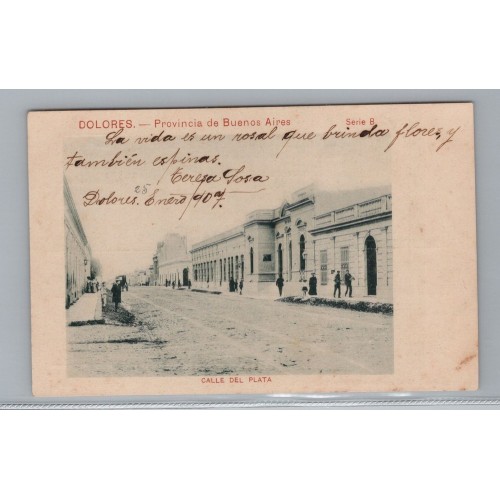 DOLORES. — Provincia de Buenos Aires Serie B.
La vida es un rosal que brinda flores, y
también espinas.
Teresa Sosa
Dolores. 25 Enero 907.
CALLE DEL PLATA